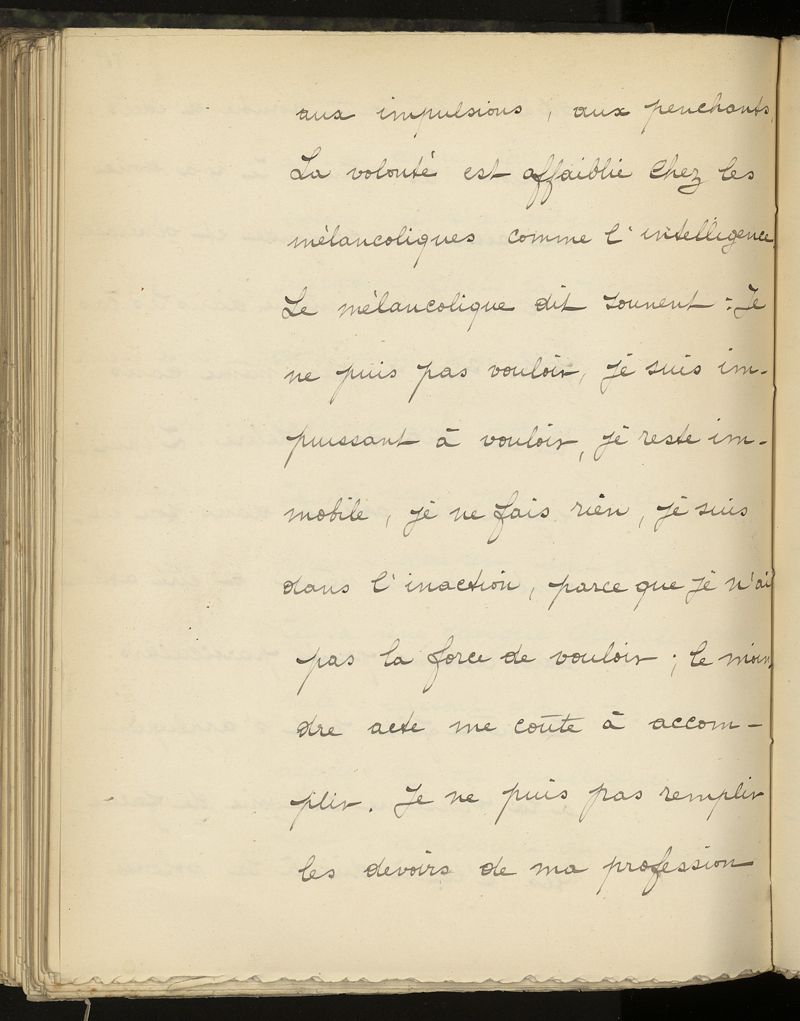 aux impulsions, aux penchants.
La volonté est affaiblie chez les
mélancoliques comme l'intelligence.
Le mélancolique dit souvent : Je
ne puis pas vouloir, je suis im-
puissant à vouloir, je reste im-
mobile, je ne fais rien, je suis
dans l'inaction, parce que je n'ai
pas la force de vouloir ; le moin-
dre acte me coûte à accom-
plir. Je ne puis pas remplir
les devoirs de ma profession